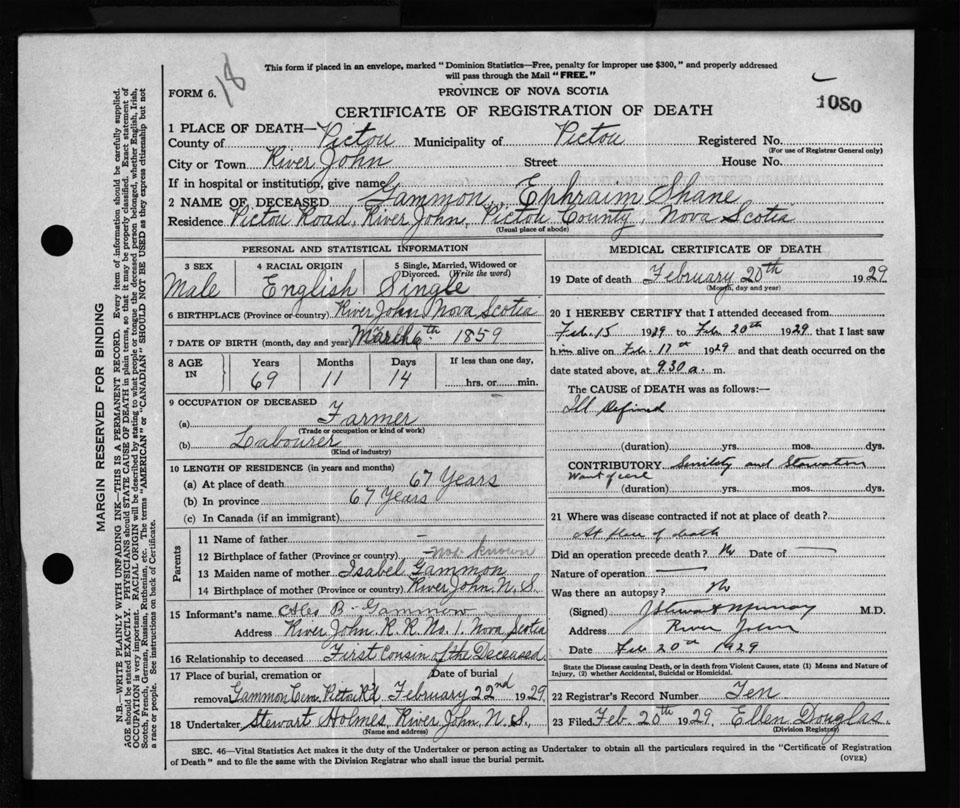 18
This form if placed in an envelope, marked "Dominion Statistics—Free, penalty for improper use $300," and properly addressed
will pass through the Mail "FREE."
FORM 6.
PROVINCE OF NOVA SCOTIA
1080
CERTIFICATE OF REGISTRATION OF DEATH
1 PLACE OF DEATH—
County of Pictou Municipality of Pictou Registered No.
(For use of Registrar General only)
City or Town River John Street House No.
If in hospital or institution, give name
2 NAME OF DECEASED Gammon, Ephraim Shane
Residence Pictou Road, River John, Pictou County, Nova Scotia
(Usual place of abode)
PERSONAL AND STATISTICAL INFORMATION
3 SEX 4 RACIAL ORIGIN 5 Single, Married, Widowed or Divorced. (Write the word)
Male English Single
6 BIRTHPLACE (Province or country) River John Nova Scotia
7 DATE OF BIRTH (month, day and year) March 6th 1859
8 AGE IN Years Months Days If less than one day,
69 11 14 hrs. or min.
9 OCCUPATION OF DECEASED
(a) Farmer
(Trade or occupation or kind of work)
(b) Labourer
(Kind of industry)
10 LENGTH OF RESIDENCE (in years and months)
(a) At place of death 67 Years
(b) In province 67 Years
(c) In Canada (if an immigrant)
Parents
11 Name of father —
12 Birthplace of father (Province or country) — not known
13 Maiden name of mother Isabel Gammon
14 Birthplace of mother (Province or country) River John N. S.
15 Informant's name B. Gammon
Address River John R. R. No. 1. Nova Scotia
16 Relationship to deceased First Cousin of the Deceased
17 Place of burial, cremation or removal Date of burial
Gammon Cem Pictou Rd February 22nd 1929
18 Undertaker Stewart Holmes, River John N. S.
(Name and address)
MEDICAL CERTIFICATE OF DEATH
19 Date of death February 20th 1929
(Month, day and year)
20 I HEREBY CERTIFY that I attended deceased from
Feb. 15 1929 to Feb. 20th 1929 that I last saw
him alive on Feb. 17th 1929 and that death occurred on the
date stated above, at 930 a. m.
The CAUSE of DEATH was as follows:—
Ill Defined
(duration) yrs. mos. dys.
CONTRIBUTORY Senility and Starvation
Want of care
(duration) yrs. mos. dys.
21 Where was disease contracted if not at place of death?
At place of death
Did an operation precede death? No Date of —
Nature of operation —
Was there an autopsy? No
(Signed) J Stewart Murray M.D.
Address River John
Date Feb 20th 1929
State the Disease causing Death, or in death from Violent Causes, state (1) Means and Nature of
Injury, (2) whether Accidental, Suicidal or Homicidal.
22 Registrar's Record Number Ten
23 Filed Feb. 20th 1929. Ellen Douglas.
(Division Registrar)
SEC. 46—Vital Statistics Act makes it the duty of the Undertaker or person acting as Undertaker to obtain all the particulars required in the "Certificate of Registration
of Death" and to file the same with the Division Registrar who shall issue the burial permit.
(OVER)
MARGIN RESERVED FOR BINDING
N.B.—WRITE PLAINLY WITH UNFADING INK—THIS IS A PERMANENT RECORD. Every item of information should be carefully supplied.
AGE should be stated EXACTLY. PHYSICIANS should STATE CAUSE OF DEATH in plain terms, so that it may be properly classified. Exact statement of
OCCUPATION is very important. RACIAL ORIGIN will be described by stating to what people or tongue the deceased person belonged, whether English, Irish,
Scotch, French, German, Russian, Ruthenian, etc. The terms "AMERICAN" or "CANADIAN" SHOULD NOT BE USED as they express citizenship but not
a race or people. See instructions on back of Certificate.